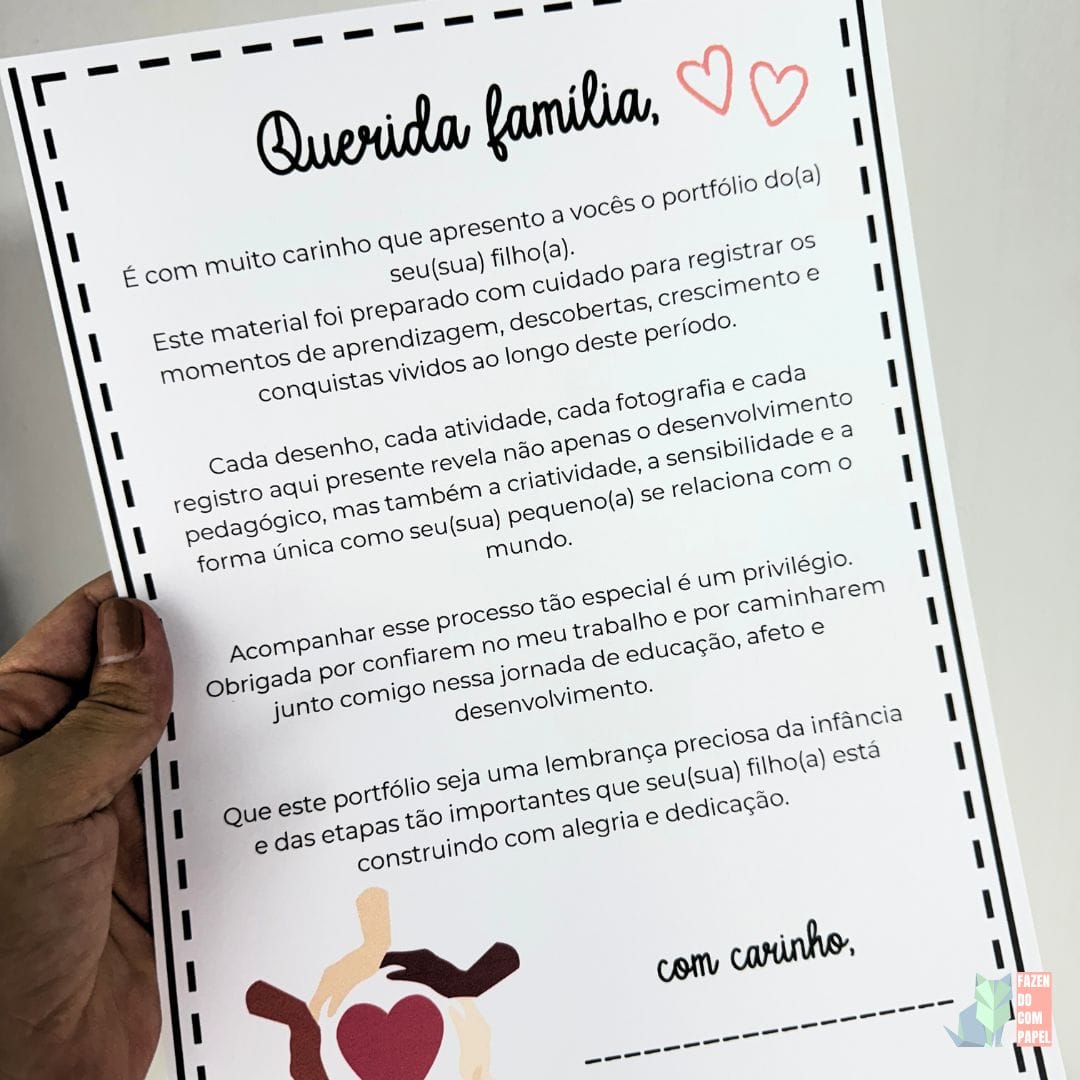 Querida família,
É com muito carinho que apresento a vocês o portfólio do(a)
seu(sua) filho(a).
Este material foi preparado com cuidado para registrar os
momentos de aprendizagem, descobertas, crescimento e
conquistas vividos ao longo deste período.
Cada desenho, cada atividade, cada fotografia e cada
registro aqui presente revela não apenas o desenvolvimento
pedagógico, mas também a criatividade, a sensibilidade e a
forma única como seu(sua) pequeno(a) se relaciona com o
mundo.
Acompanhar esse processo tão especial é um privilégio.
Obrigada por confiarem no meu trabalho e por caminharem
junto comigo nessa jornada de educação, afeto e
desenvolvimento.
Que este portfólio seja uma lembrança preciosa da infância
e das etapas tão importantes que seu(sua) filho(a) está
construindo com alegria e dedicação.
com carinho,
FAZEN
DO
COM
PAPEL